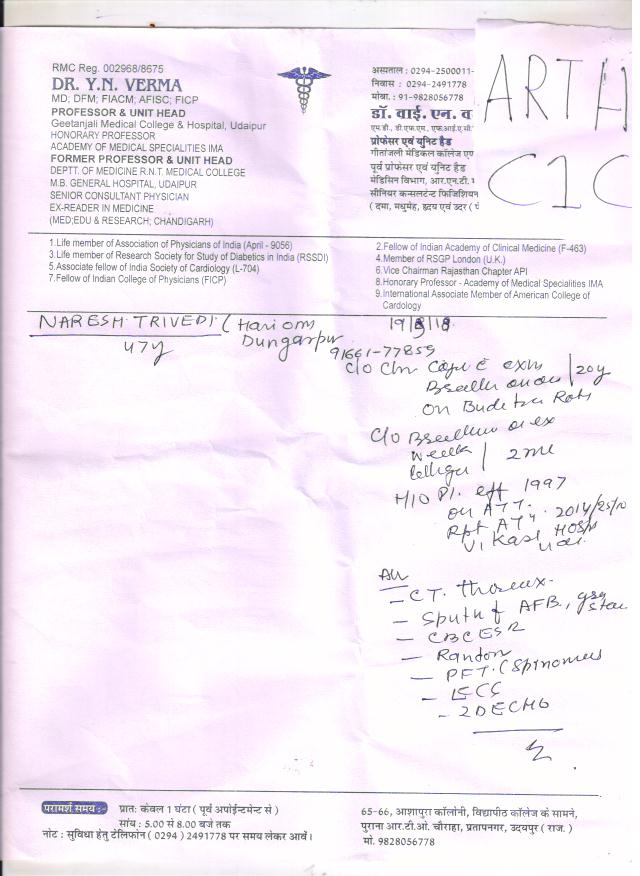 RMC Reg. 002968/8675
DR. Y.N. VERMA
MD; DFM; FIACM; AFISC; FICP
PROFESSOR & UNIT HEAD
Geetanjali Medical College & Hospital, Udaipur
HONORARY PROFESSOR
ACADEMY OF MEDICAL SPECIALITIES IMA
FORMER PROFESSOR & UNIT HEAD
DEPTT. OF MEDICINE R.N.T. MEDICAL COLLEGE
M.B. GENERAL HOSPITAL, UDAIPUR
SENIOR CONSULTANT PHYSICIAN
EX-READER IN MEDICINE
(MED;EDU & RESEARCH; CHANDIGARH)
अस्पताल : 0294-2500011-
निवास : 0294-2491778
मोबा. : 91-9828056778
डॉ. वाई. एन. व
एम.डी., डी.एफ.एम., एफ.आई.ए.सी.
प्रोफेसर एवं यूनिट हैड
गीतांजली मेडिकल कॉलेज एण
पूर्व प्रोफेसर एवं यूनिट हैड
मेडिसिन विभाग, आर.एन.टी.
सीनियर कन्सलटेन्ट फिजिशियन
( दमा, मधुमेह, हृदय एवं उदर (
ARTH
CIC
1.Life member of Association of Physicians of India (April - 9056)
3.Life member of Research Society for Study of Diabetics in India (RSSDI)
5.Associate fellow of India Society of Cardiology (L-704)
7.Fellow of Indian College of Physicians (FICP)
2.Fellow of Indian Academy of Clinical Medicine (F-463)
4.Member of RSGP London (U.K.)
6.Vice Chairman Rajasthan Chapter API
8.Honorary Professor - Academy of Medical Specialities IMA
9.International Associate Member of American College of
Cardology
NARESH TRIVEDI ( Hari om 19/8/18
47y Dungarpur
91661-77855
C/O Chr
20y
On
C/O
2
H/O Pl. eff 1997
on ATT.
Rpt ATT. 2014/
Vikas Hosp
- CT. thorax
- Sputm f AFB,
- CBC ESR
- Random
- PFT. (
- ECG
- 2DECHO
परामर्श समय :- प्रातः केवल 1 घंटा ( पूर्व अपॉईन्टमेन्ट से )
सांय : 5.00 से 8.00 बजे तक
नोट : सुविधा हेतु टेलिफोन ( 0294 ) 2491778 पर समय लेकर आवें।
65-66, आशापुरा कॉलोनी, विद्यापीठ कॉलेज के सामने,
पुराना आर.टी.ओ. चौराहा, प्रतापनगर, उदयपुर ( राज. )
मो. 9828056778